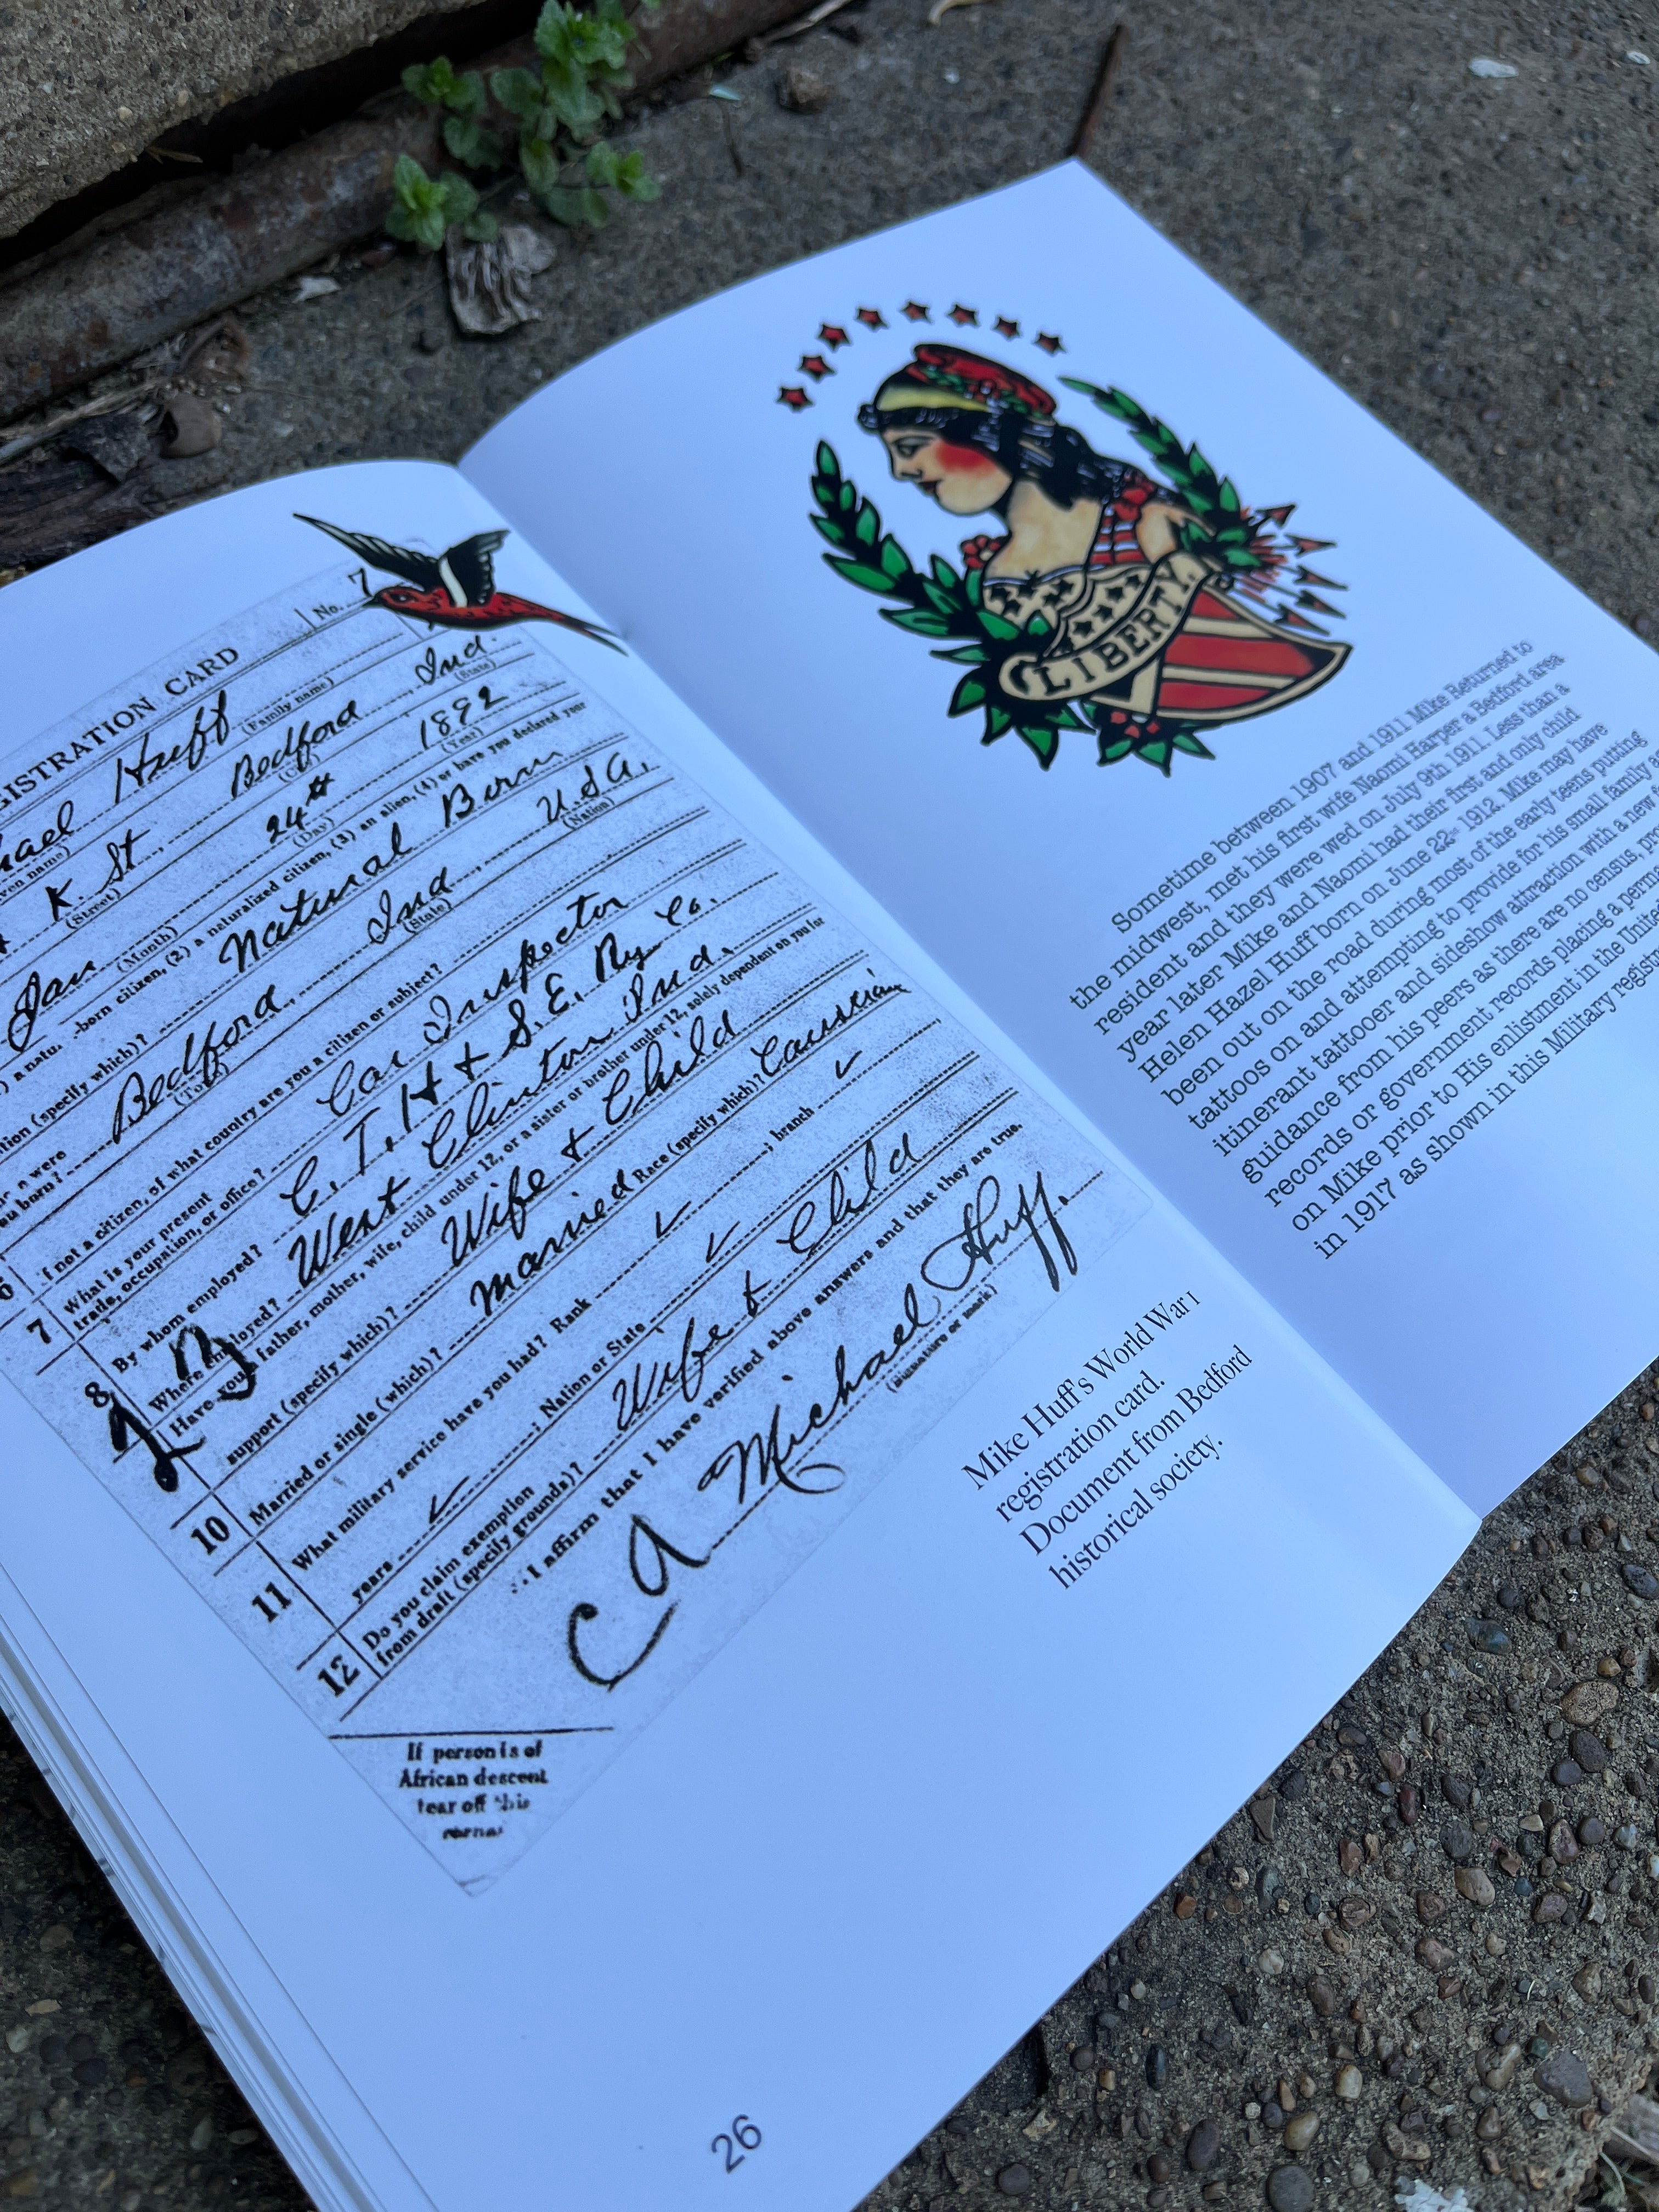 REGISTRATION CARD
No. 7
Huff
(Family name)
K. St. Bedford Ind.
(Street) (State)
Jan 24th 1892
(Month) (Day) (Year)
-born citizen, (2) a naturalized citizen, (3) an alien, (4) or have you declared your
(specify which)? Natural Born
Bedford, Ind U.S.A.
(State) (Nation)
If not a citizen, of what country are you a citizen or subject?
7 What is your present trade, occupation, or office? Car Inspector
8 By whom employed? C. T. H + S. E. Ry Co.
Where employed? West Clinton Ind.
Have you a father, mother, wife, child under 12, or a sister or brother under 12, solely dependent on you for
support (specify which)? Wife + Child
10 Married or single (which)? Married Race (specify which)? Caucasian
11 What military service have you had? Rank ; branch
years ; Nation or State
12 Do you claim exemption
from draft (specify grounds)? Wife + Child
I affirm that I have verified above answers and that they are true.
Michael Huff.
(Signature or mark)
If person is of
African descent
tear off this
Mike Huff's World War I
registration card.
Document from Bedford
historical society.
26
LIBERTY
Sometime between 1907 and 1911 Mike Returned to
the midwest, met his first wife Naomi Harper a Bedford area
resident and they were wed on July 9th 1911. Less than a
year later Mike and Naomi had their first and only child
Helen Hazel Huff born on June 22nd 1912. Mike may have
been out on the road during most of the early teens putting
tattoos on and attempting to provide for his small family as
itinerant tattooer and sideshow attraction with a new
guidance from his peers as there are no census,
records or government records placing a
on Mike prior to His enlistment in the United
in 1917 as shown in this Military